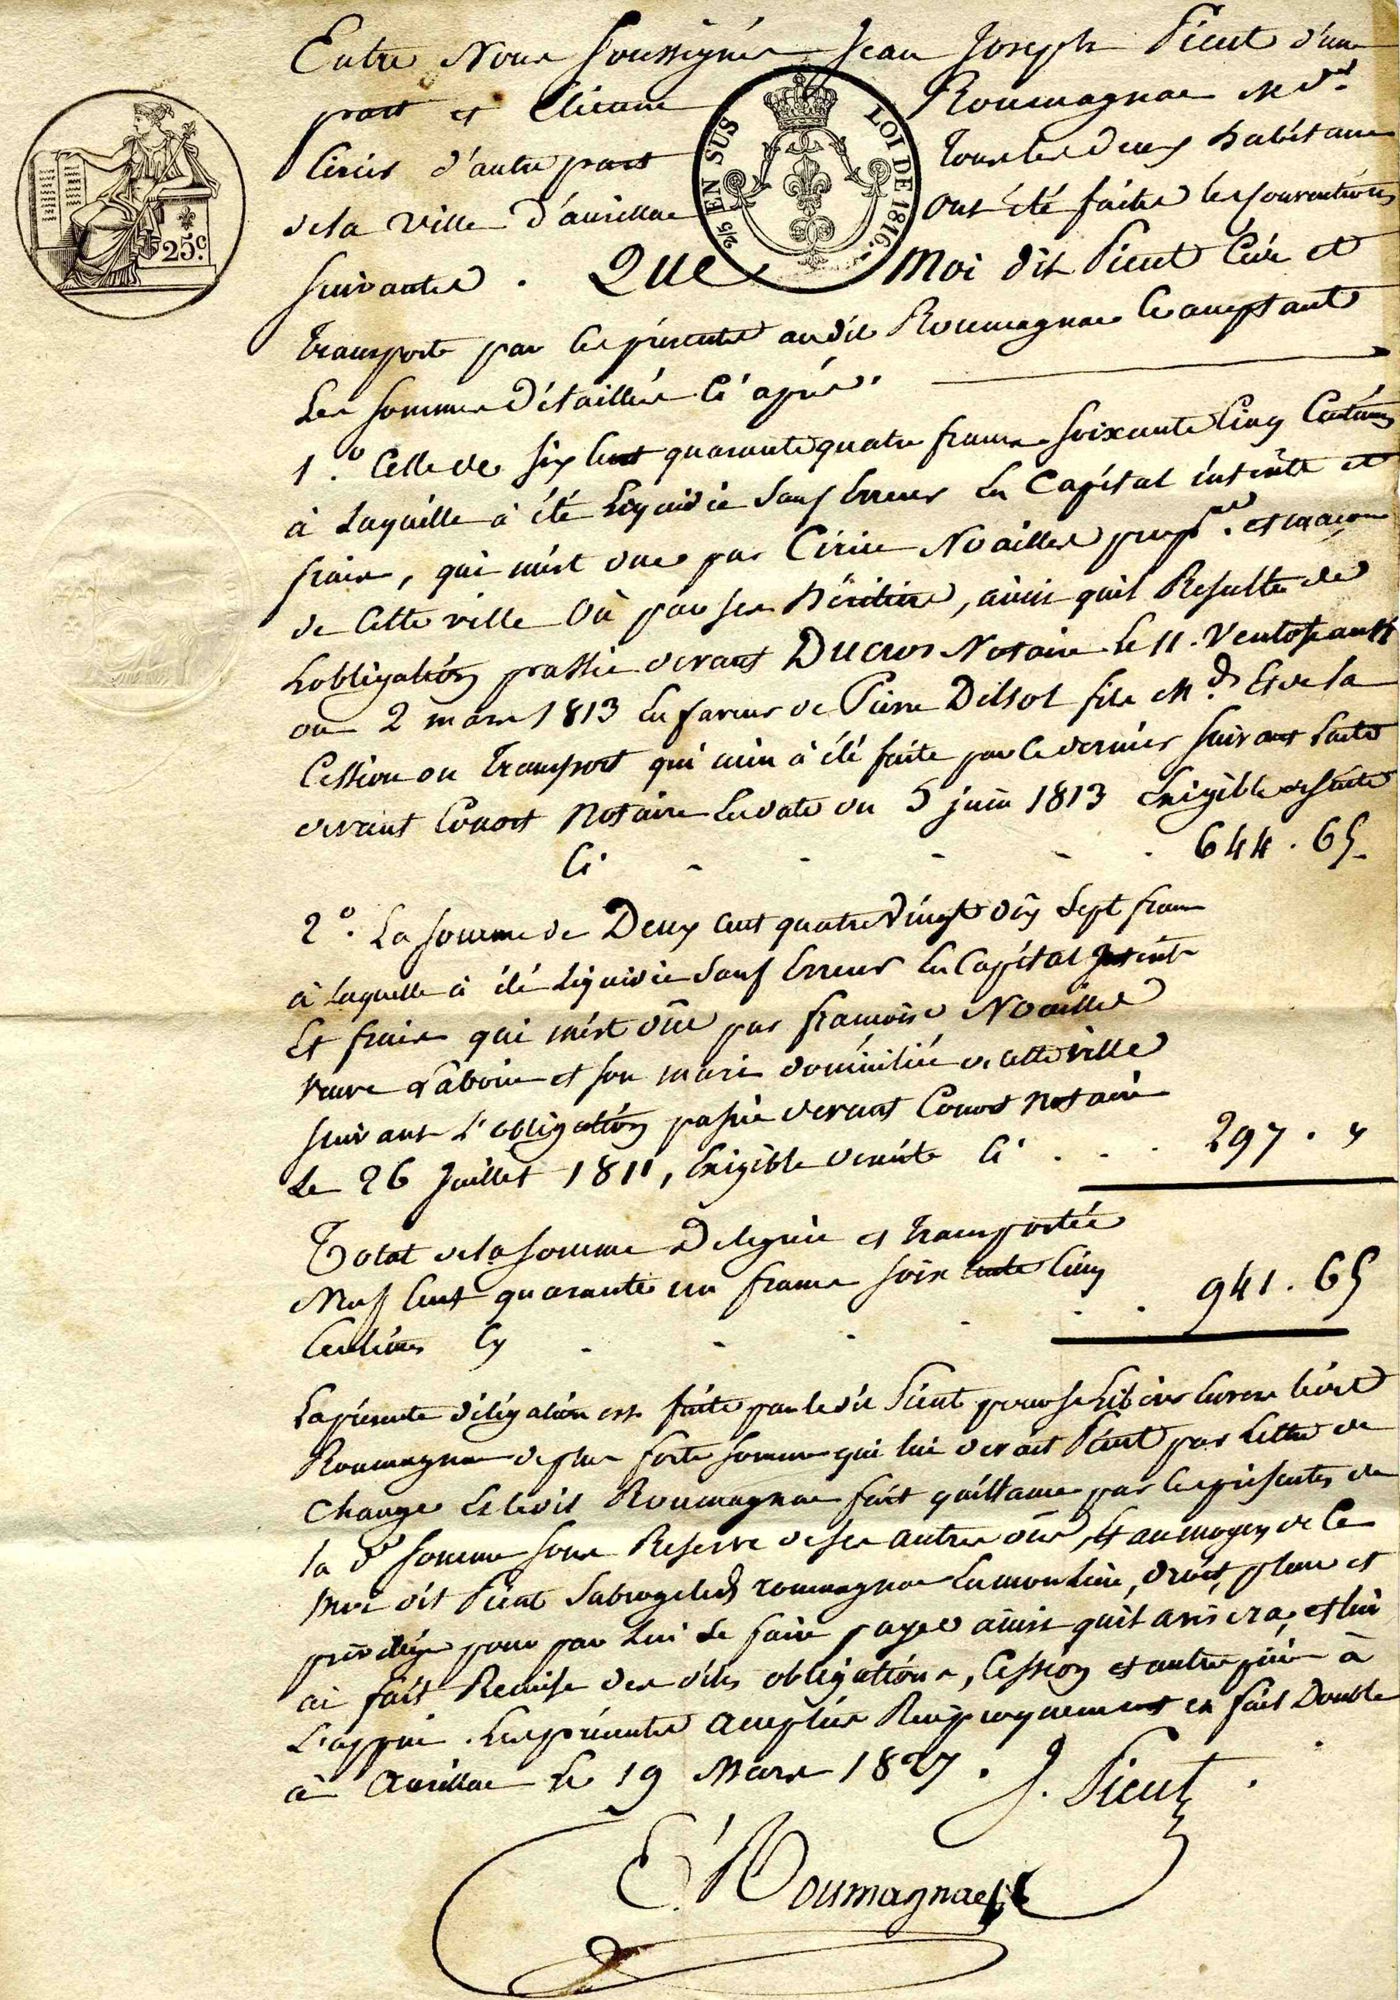 Entre Nous soussignés Jean Joseph Pieut d'une
part et Etienne Roumagnac Md.
Ciriés d'autre part tous les deux habitans
2/5 EN SUS
LOI DE 1816.
25 c.
de la ville d'aurillac ont été faites les conventions
suivantes. Que Moi dit Pieut Cède et
transporte par les présentes audit Roumagnac acceptant
Les sommes détaillées Ci après.
1.º Celle de six cent quarante quatre francs soixante Cinq Centimes
à Laquelle à été Liquidée Sauf Erreur En Capital intérêts et
frais, qui m'est due par Cirice Noailles prop.re et maçon
de Cette ville Ou par ses héritiers, ainsi quil Resulte de
Lobligation passée devant Ducros Notaire Le 11 Ventose an
ou 2 mars 1813 En faveur de Pierre Delsol fils Md. Et de la
Cession ou transport qui m'en à été faite par ce dernier suivant Lacte
devant Conort Notaire En date du 5 juin 1813 Exigible desuite
Ci - - - - 644.65.
2º. La somme de Deux cent quatre Vingt dix Sept francs
à Laquelle à été Liquidée Sauf Erreur En Capital Intérêts
Et frais qui m'est dûe par francoise Noailles
veuve et son mari domiciliée de cette ville
suivant L'obligation passée devant Conort notaire
Le 26 Juillet 1811, Exigible desuite Ci . . . 297. "
Total de la somme Deleguée et transportée
Neuf Cent quarante un francs soixante Cinq
Centimes Cy - - - - . . 941.65
La présente délégation est faite par le dit Pieut pour se Libérer Envers led.
Roumagnac de plus forte somme qui lui devait Pieut par Lettre de
Change Et ledit Roumagnac fait quittance par les présentes de
la d.e somme sous Reserve de ses autres dûs, Et au moyen de Ce
Moi dit Pieut Subroge led. roumagnac En mon Lieu, droit, place et
privilége pour par Lui Se faire payer ainsi quil avisera, et lui
ai fait Remise des dites obligations, Cession et autres pièces à
L'appui. Les présentes acceptées Reciproquement et fait Double
à Aurillac le 19 Mars 1827.
J. Pieut
E. Roumagnac